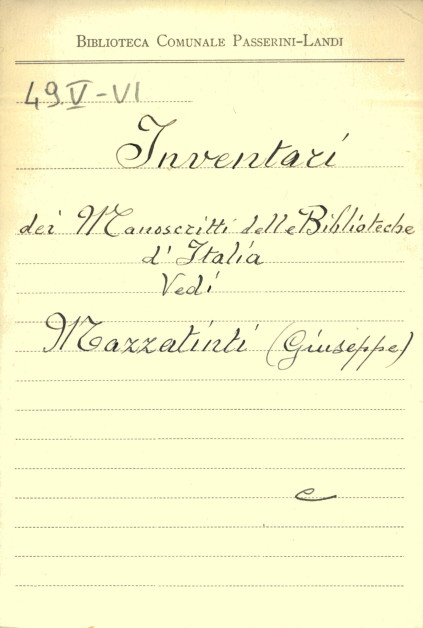 BIBLIOTECA COMUNALE PASSERINI-LANDI
49.V-VI
Inventari
dei Manoscritti delle Biblioteche
d'Italia
Vedi
Mazzatinti (Giuseppe)
e